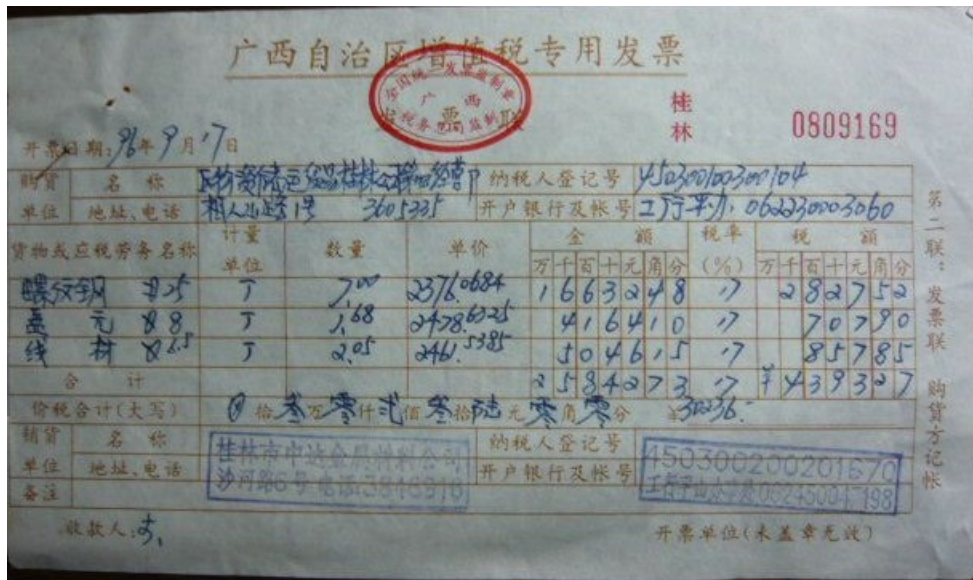 广西自治区增值税专用发票
全国统一发票监制章
广西
税务总局监制
发票联
桂林
0809169
开票日期: 96年9月17日
购货单位 名称 纳税人登记号 450300100300104
地址、电话 相人山路1号 3605335 开户银行及帐号 工行平办. 062230003060
货物或应税劳务名称 计量单位 数量 单价 金额 税率(%) 税额
万千百十元角分 万千百十元角分
螺纹钢 φ25 T 7.00 2376.0684 1663248 17 282752
盘元 φ8 T 1.68 2478.6325 416410 17 70790
线材 φ6.5 T 2.05 2461.5385 504615 17 85785
合计 2584273 17 ¥439327
价税合计(大写) ⊗拾叁万零仟贰佰叁拾陆元零角零分 ¥30236.-
销货单位 名称 桂林市中达金属材料公司 纳税人登记号 450300200201670
地址、电话 沙河路6号 电话:3846916 开户银行及帐号 工行平山办
备注
收款人: 开票单位(未盖章无效)
第二联:发票联 购货方记帐